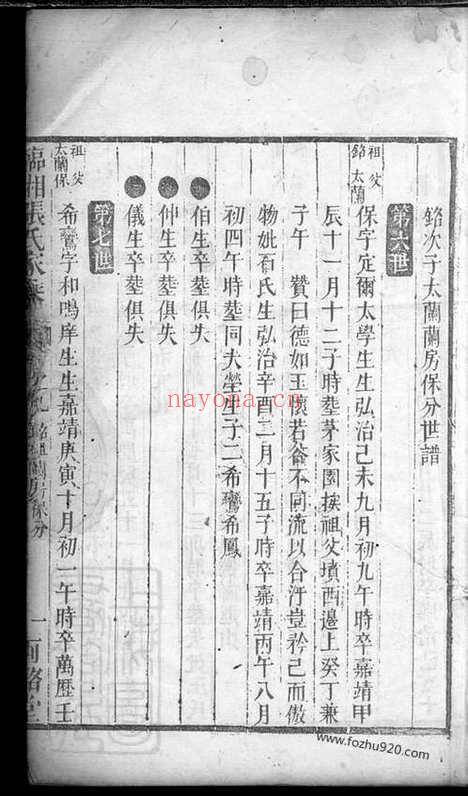 銘次子太蘭蘭房保分世譜
第六世
祖 銘
父 太蘭
保字定爾太學生生弘治己未九月初九午時卒嘉靖甲
辰十一月十二子時塟茅家園挨祖父墳西邊上癸丁兼
子午 贊曰德如玉懷若谷不同流以合汙豈矜己而傲
物妣石氏生弘治辛酉二月十五子時卒嘉靖丙午八月
初四午時塟同夫塋生子二希鸞希鳳
伯生卒塟俱失
仲生卒塟俱失
儀生卒塟俱失
第七世
祖 太蘭
父 保
希鸞字和鳴庠生生嘉靖庚寅十月初一午時卒萬歷壬
臨湘張氏家乘
銘祖蘭房保分
nayona.cn
www.fozhu920.com